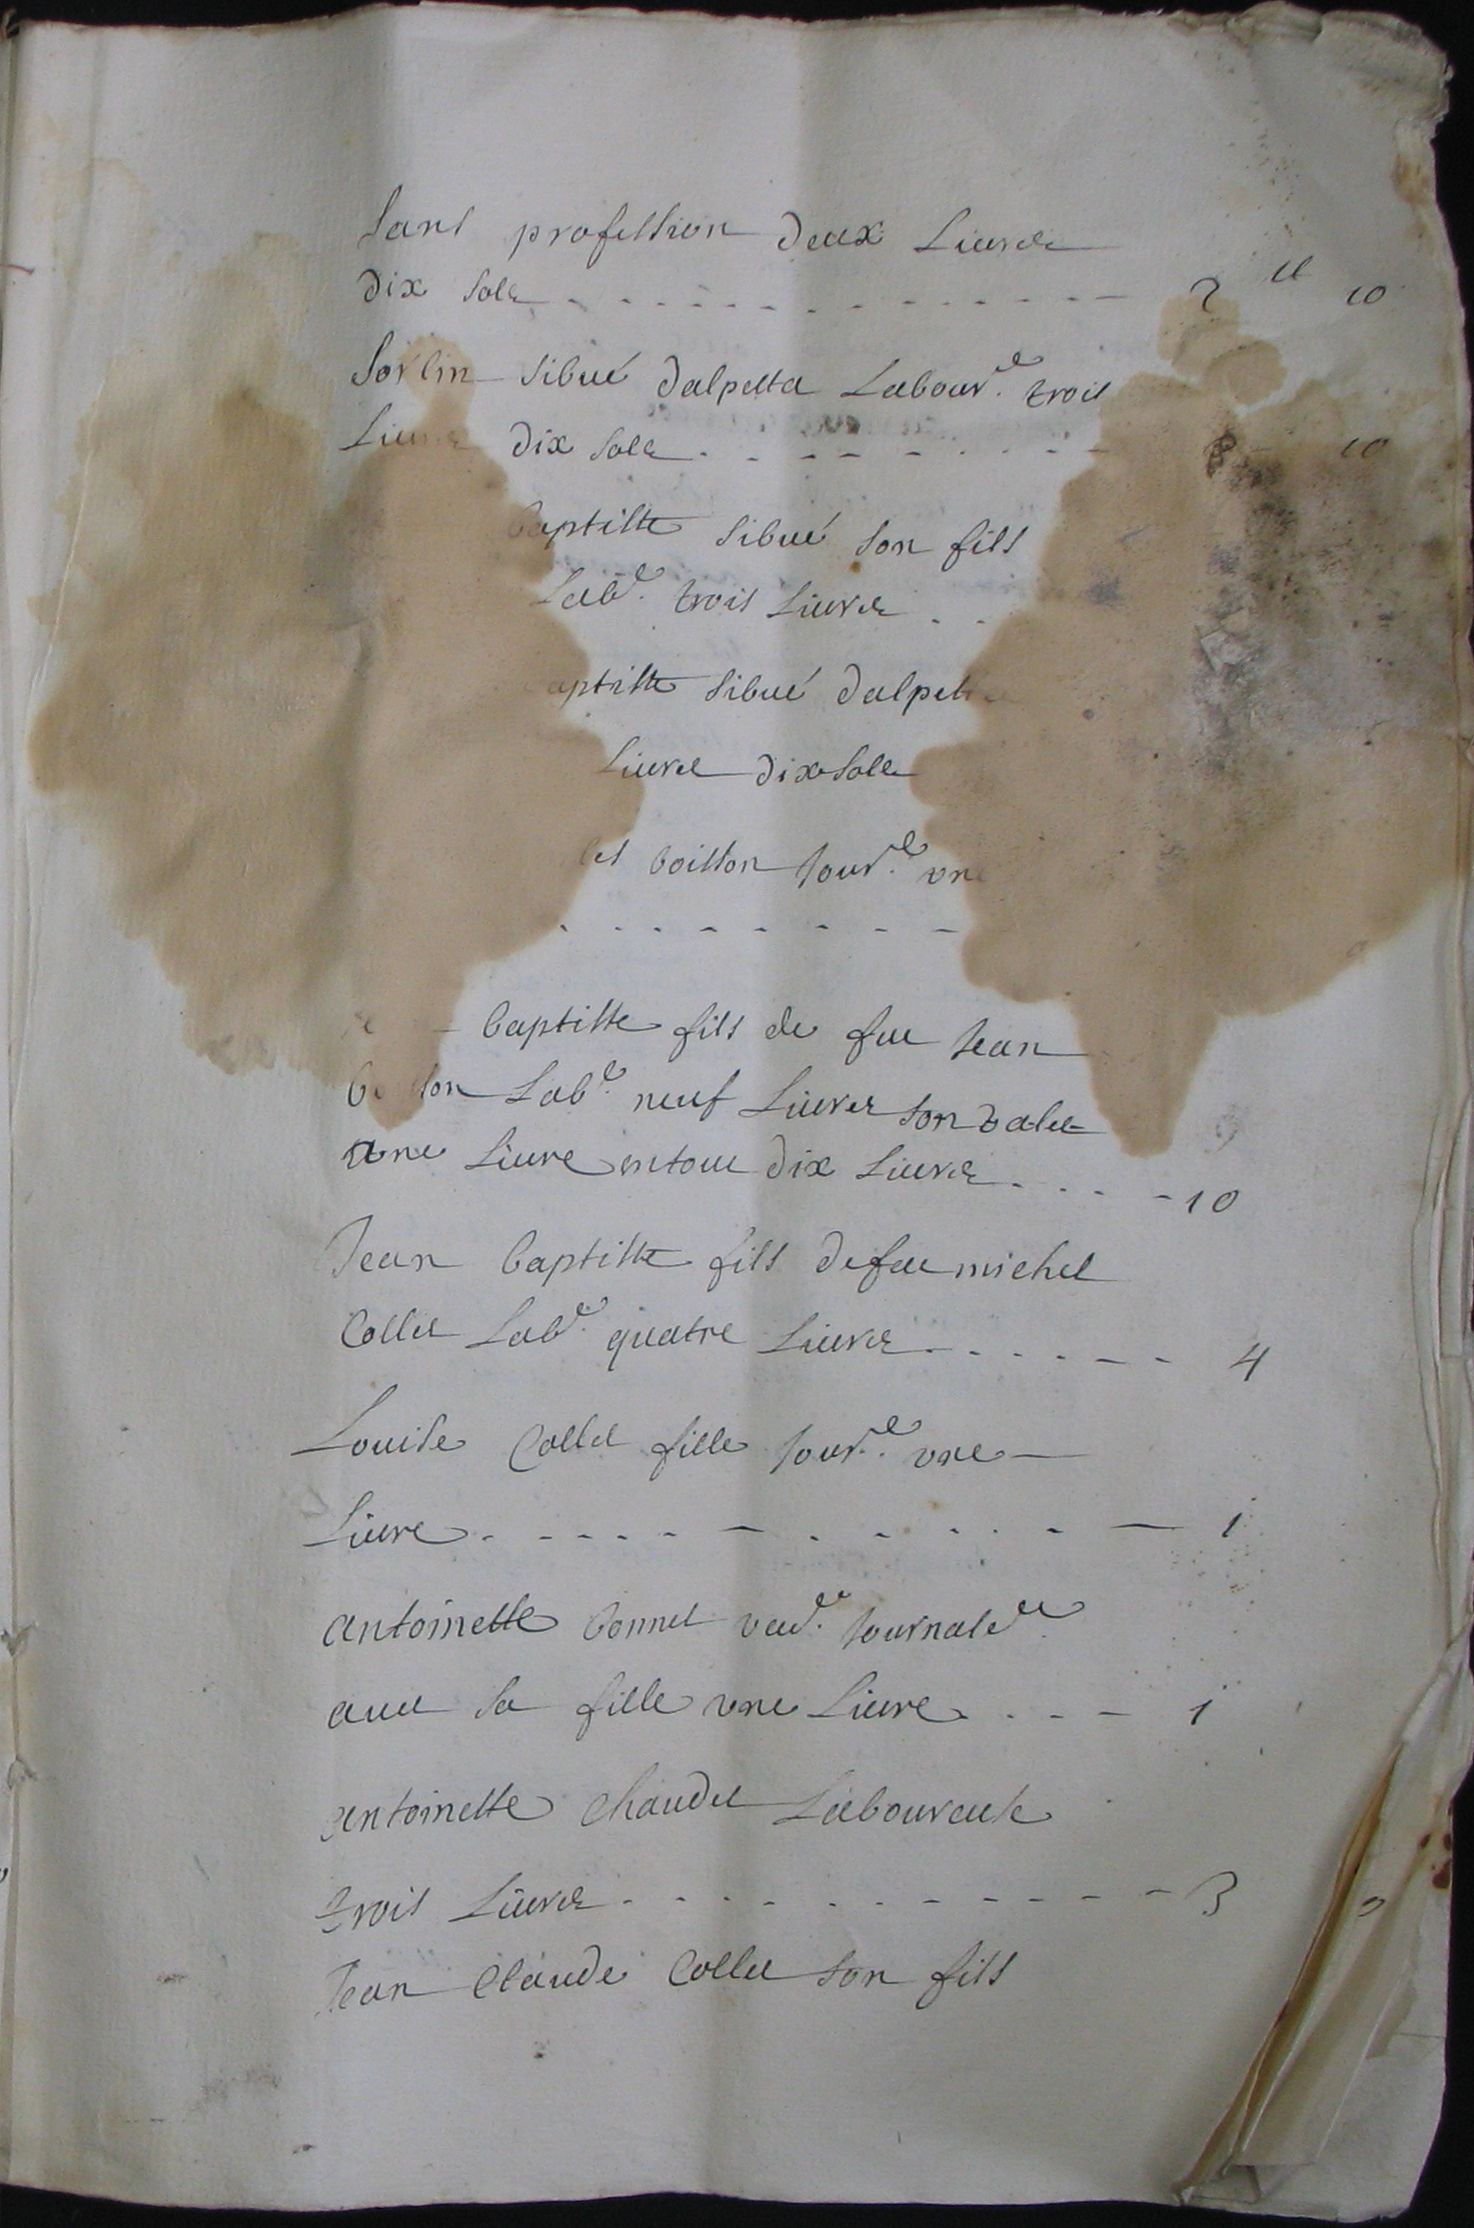 sans profession deux Livres
dix sols - - - - - - - - 2 ll 10
Sorlin sibué dalpetta Labour.e trois
dix sols - - - - - - 10
baptiste sibué son fils
Lab.e trois Livres - -
sibué
Livres dix sols
boisson Jour.e une
- - - - - - - -
baptiste fils de feu Jean
Lab.e neuf Livres son valet
une Livre en tout dix Livres - - - - 10
Jean baptiste fils de feu michel
Collet Lab.e quatre Livres - - - - - - 4
Louise Collet fille Jour.e une
Livre - - - - - - - - - - 1
antoinette bonnet veu.e Journal.e
avec sa fille une Livre - - - 1
antoinette chaudet Laboureuse
trois Livres - - - - - - - - - - 3
Jean Claude Collet son fils